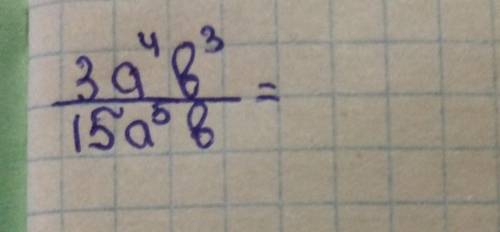 3a⁴b³
15a⁵b =